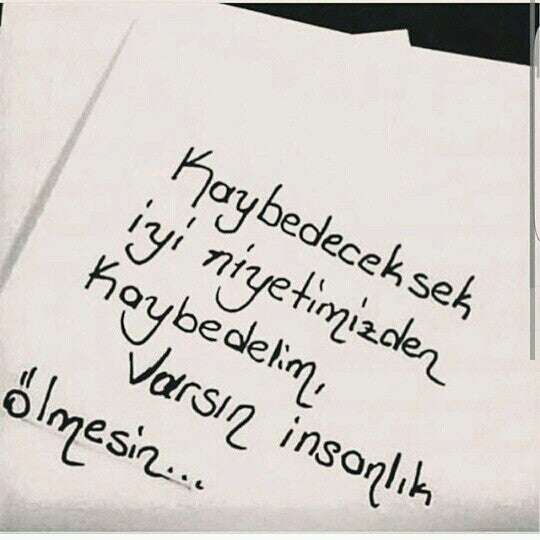 Kaybedeceksek
iyi niyetimizden
Kaybedelim,
Varsın insanlık
ölmesin...